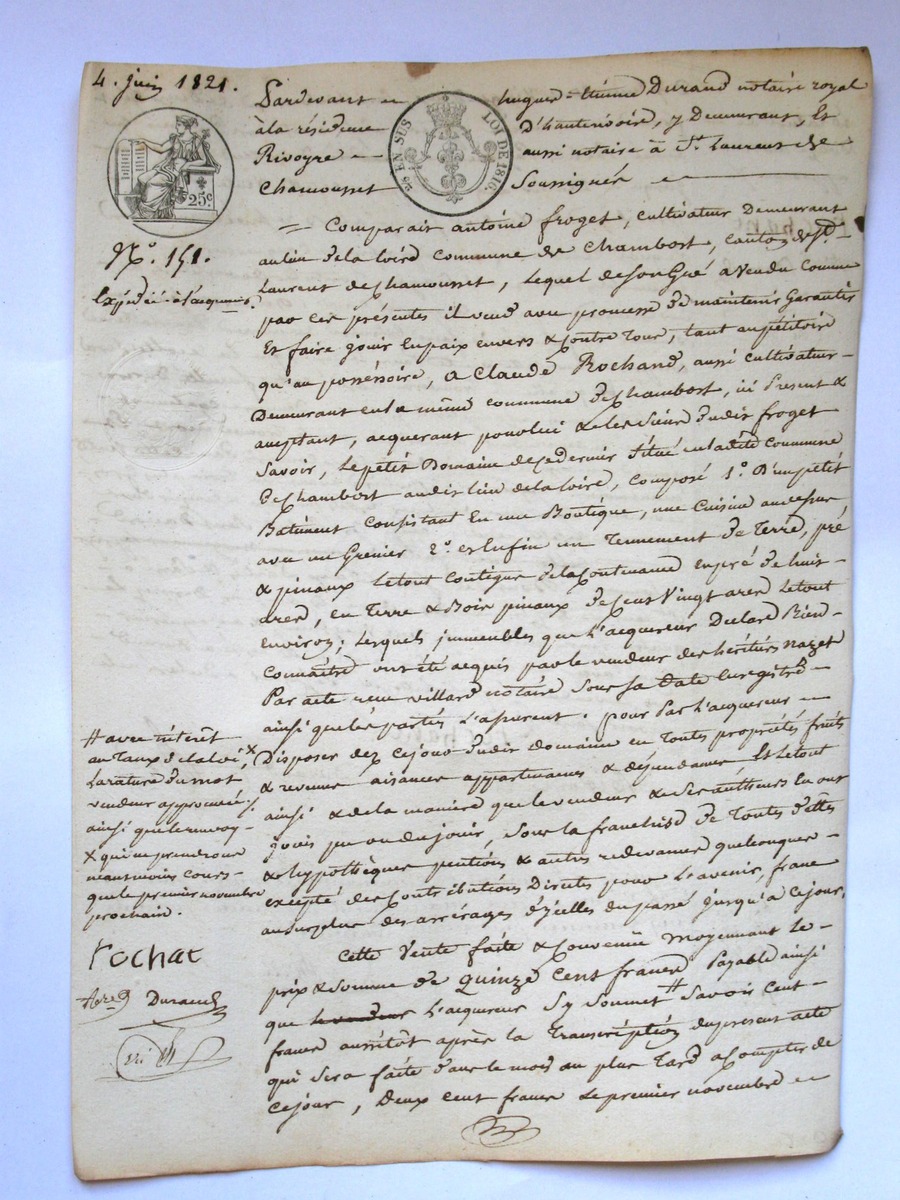 4. juin 1821.
25 EN SUS
LOI DE 1816.
25c
Pardevant hugues Etienne Durand notaire royal
à la résidence D'hauterivoire, y Demeurant, Et
Rivoyre aussi notaire à St. Laurent de
Chamousset Soussignés
Comparait antoine froget, cultivateur Demeurant
au lieu dela loire commune de Chambost, canton de St.
Laurent de Chamousset, Lequel de son Gré a Vendu comme
par ces présentes il vend avec promesse de maintenir Garantir
Et faire jouir En paix envers & contre Tous, tant au pétitoire
qu'au possessoire, a Claude Rochand, aussi cultivateur
Demeurant en la même commune de Chambost, ici Présent &
acceptant, acquerant pour lui & les siens dudit froget
Savoir, Le petit Domaine de ce dernier Situé en ladite commune
De Chambost audit lieu dela loire, composé 1o. D'un petit
Bâtiment Consistant En une Boutique, une Cuisine au dessus
avec un Grenier 2o. et Enfin un Tennement de Terre, pré
& pinaux Le tout contigue dela Contenance en pré de huit
ares, en Terre & Bois pinaux de cent Vingt ares Le tout
environ; Lesquels immeubles que L'acquereur Declare Bien
Connaître ont été acquis par le vendeur des héritiers nazet
Par acte reçu villard notaire sous sa Date Enregistré
ainsi que les parties L'assurent. pour Par L'acquereur
Disposer dez ce jour dudit domaine en Toutes propriétés fruits
& revenus aisances appartenances & dépendances Et Le tout
ainsi & de la maniere que le vendeur & ses autheurs En ont
joui pu ou du jouir, sous la franchise de Toutes dettes
& hypothèques pentions & autres redevances quelconques
excepté des Contributions Directes pour L'avenir, franc
au surplus des arrérages d'ycelles du passé jusqu'à ce jour.
Cette Vente faite & Convenue moyennant Le
prix & Somme de quinze cent francs Payable ainsi
que L'acquereur S'y Soumet # Savoir Cent
francs aussitôt après la Transcription du present acte
qui sera faite dans le mois au plus Tard a Compter de
ce jour, Deux cent francs Le premier novembre
No. 151.
Expédié à l'acquereur.
# avec intérêt
au Taux de la loi, x
La rature du mot
vendeur approuvée
ainsi que le renvoy
X qui ne prendront
neanmoins cours
que le premier novembre
prochain.
rochat
Durand